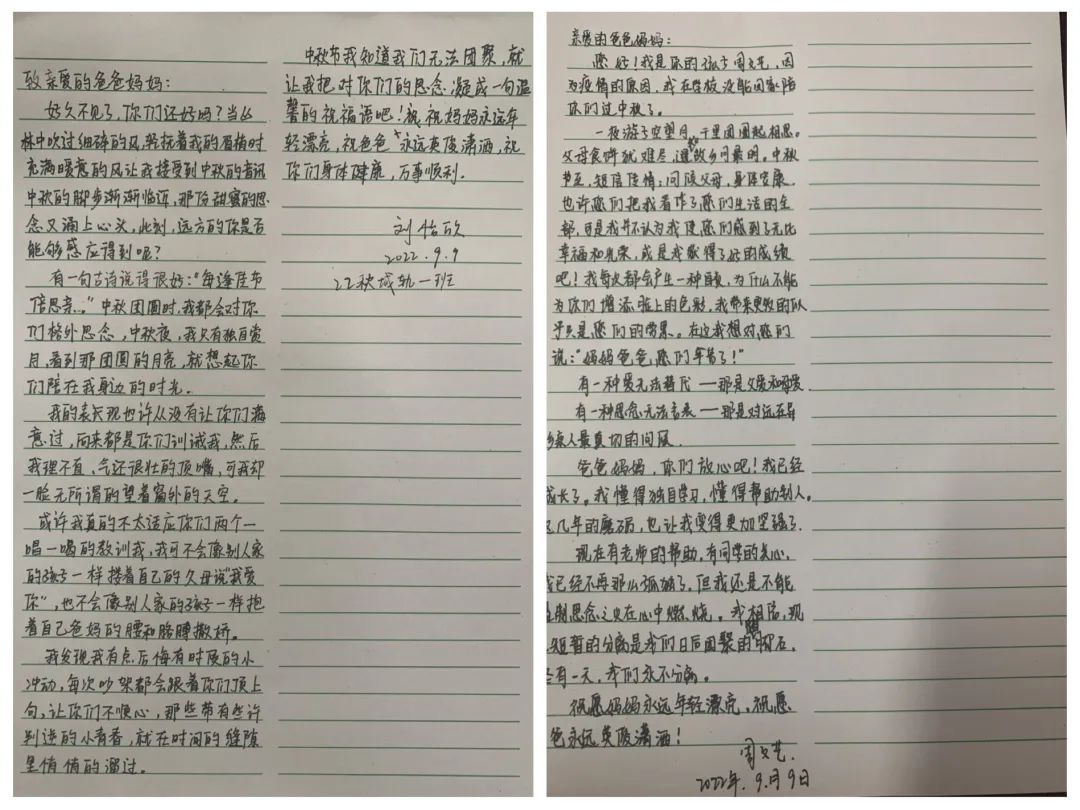 致亲爱的爸爸妈妈：
好久不见了，你们还好吗？当丛
林中吹过细碎的风，轻抚着我的眉梢时
充满暖意的风让我接受到中秋的音讯
中秋的脚步渐渐临近，那份甜蜜的思
念又涌上心头，此刻，远方的你是否
能够感应得到呢？
有一句古诗说得很好："每逢佳节
倍思亲。"中秋团圆时，我都会对你
们格外思念，中秋夜，我只有独自赏
月，看到那团圆的月亮，就想起你
们陪在我身边的时光。
我的表现也许从没有让你们满
意过，向来都是你们训诫我，然后
我理不直、气还很壮的顶嘴，可我却
一脸无所谓的望着窗外的天空。
或许我真的不太适应你们两个一
唱一喝的教训我，我可不会像别人家
的孩子一样搂着自己的父母说"我爱
你"，也不会像别人家的孩子一样抱
着自己爸妈的腰和胳膊撒娇。
我发现我有点后悔有时候的小
冲动，每次吵架都会跟着你们顶上
句，让你们不顺心，那些带有些许
叛逆的小青春，就在时间的缝隙
里悄悄的溜过。
中秋节我知道我们无法团聚，就
让我把对你们的思念凝成一句温
馨的祝福语吧！祝祝妈妈永远年
轻漂亮，祝爸爸永远英俊潇洒，祝
你们身体健康，万事顺利。
刘怡欣
2022.9.9
22秋城轨一班
亲爱的爸爸妈妈：
您好！我是你的孩子周文艺，因
为疫情的原因，我在学校没能回家陪
你们过中秋了。
一夜游子空望月，千里团圆起相思。
父母食饼就难尽，遥故乡月最明。中秋
节至，短信传情；问候父母，身体安康，
也许您们把我看作了您们生活的全
部，可是我并不认为我使您们感到了无比
幸福和光荣，或是我取得了好的成绩
吧！我每次都会产生一种自责，为什么不能
为你们增添脸上的色彩，我带来更多的似
乎只是您们的劳累。在这我想对您们
说："妈妈爸爸您们辛苦了！"
有一种爱无法替代——那是父爱和母爱
有一种思念无法言表——那是对远在异
乡亲人最真切的问候
爸爸妈妈，你们放心吧！我已经
成长了。我懂得独自学习，懂得帮助别人。
这几年的磨砺，也让我变得更加坚强了。
现在有老师的帮助，有同学的关心，
我已经不再那么孤独了，但我还是不能
思念之火在心中燃烧。我相信，现
短暂的分离是我们日后团聚的石，
有一天，我们永不分离。
祝愿妈妈永远年轻漂亮，祝愿
爸永远英俊潇洒！
周文艺
2022年.9月9日